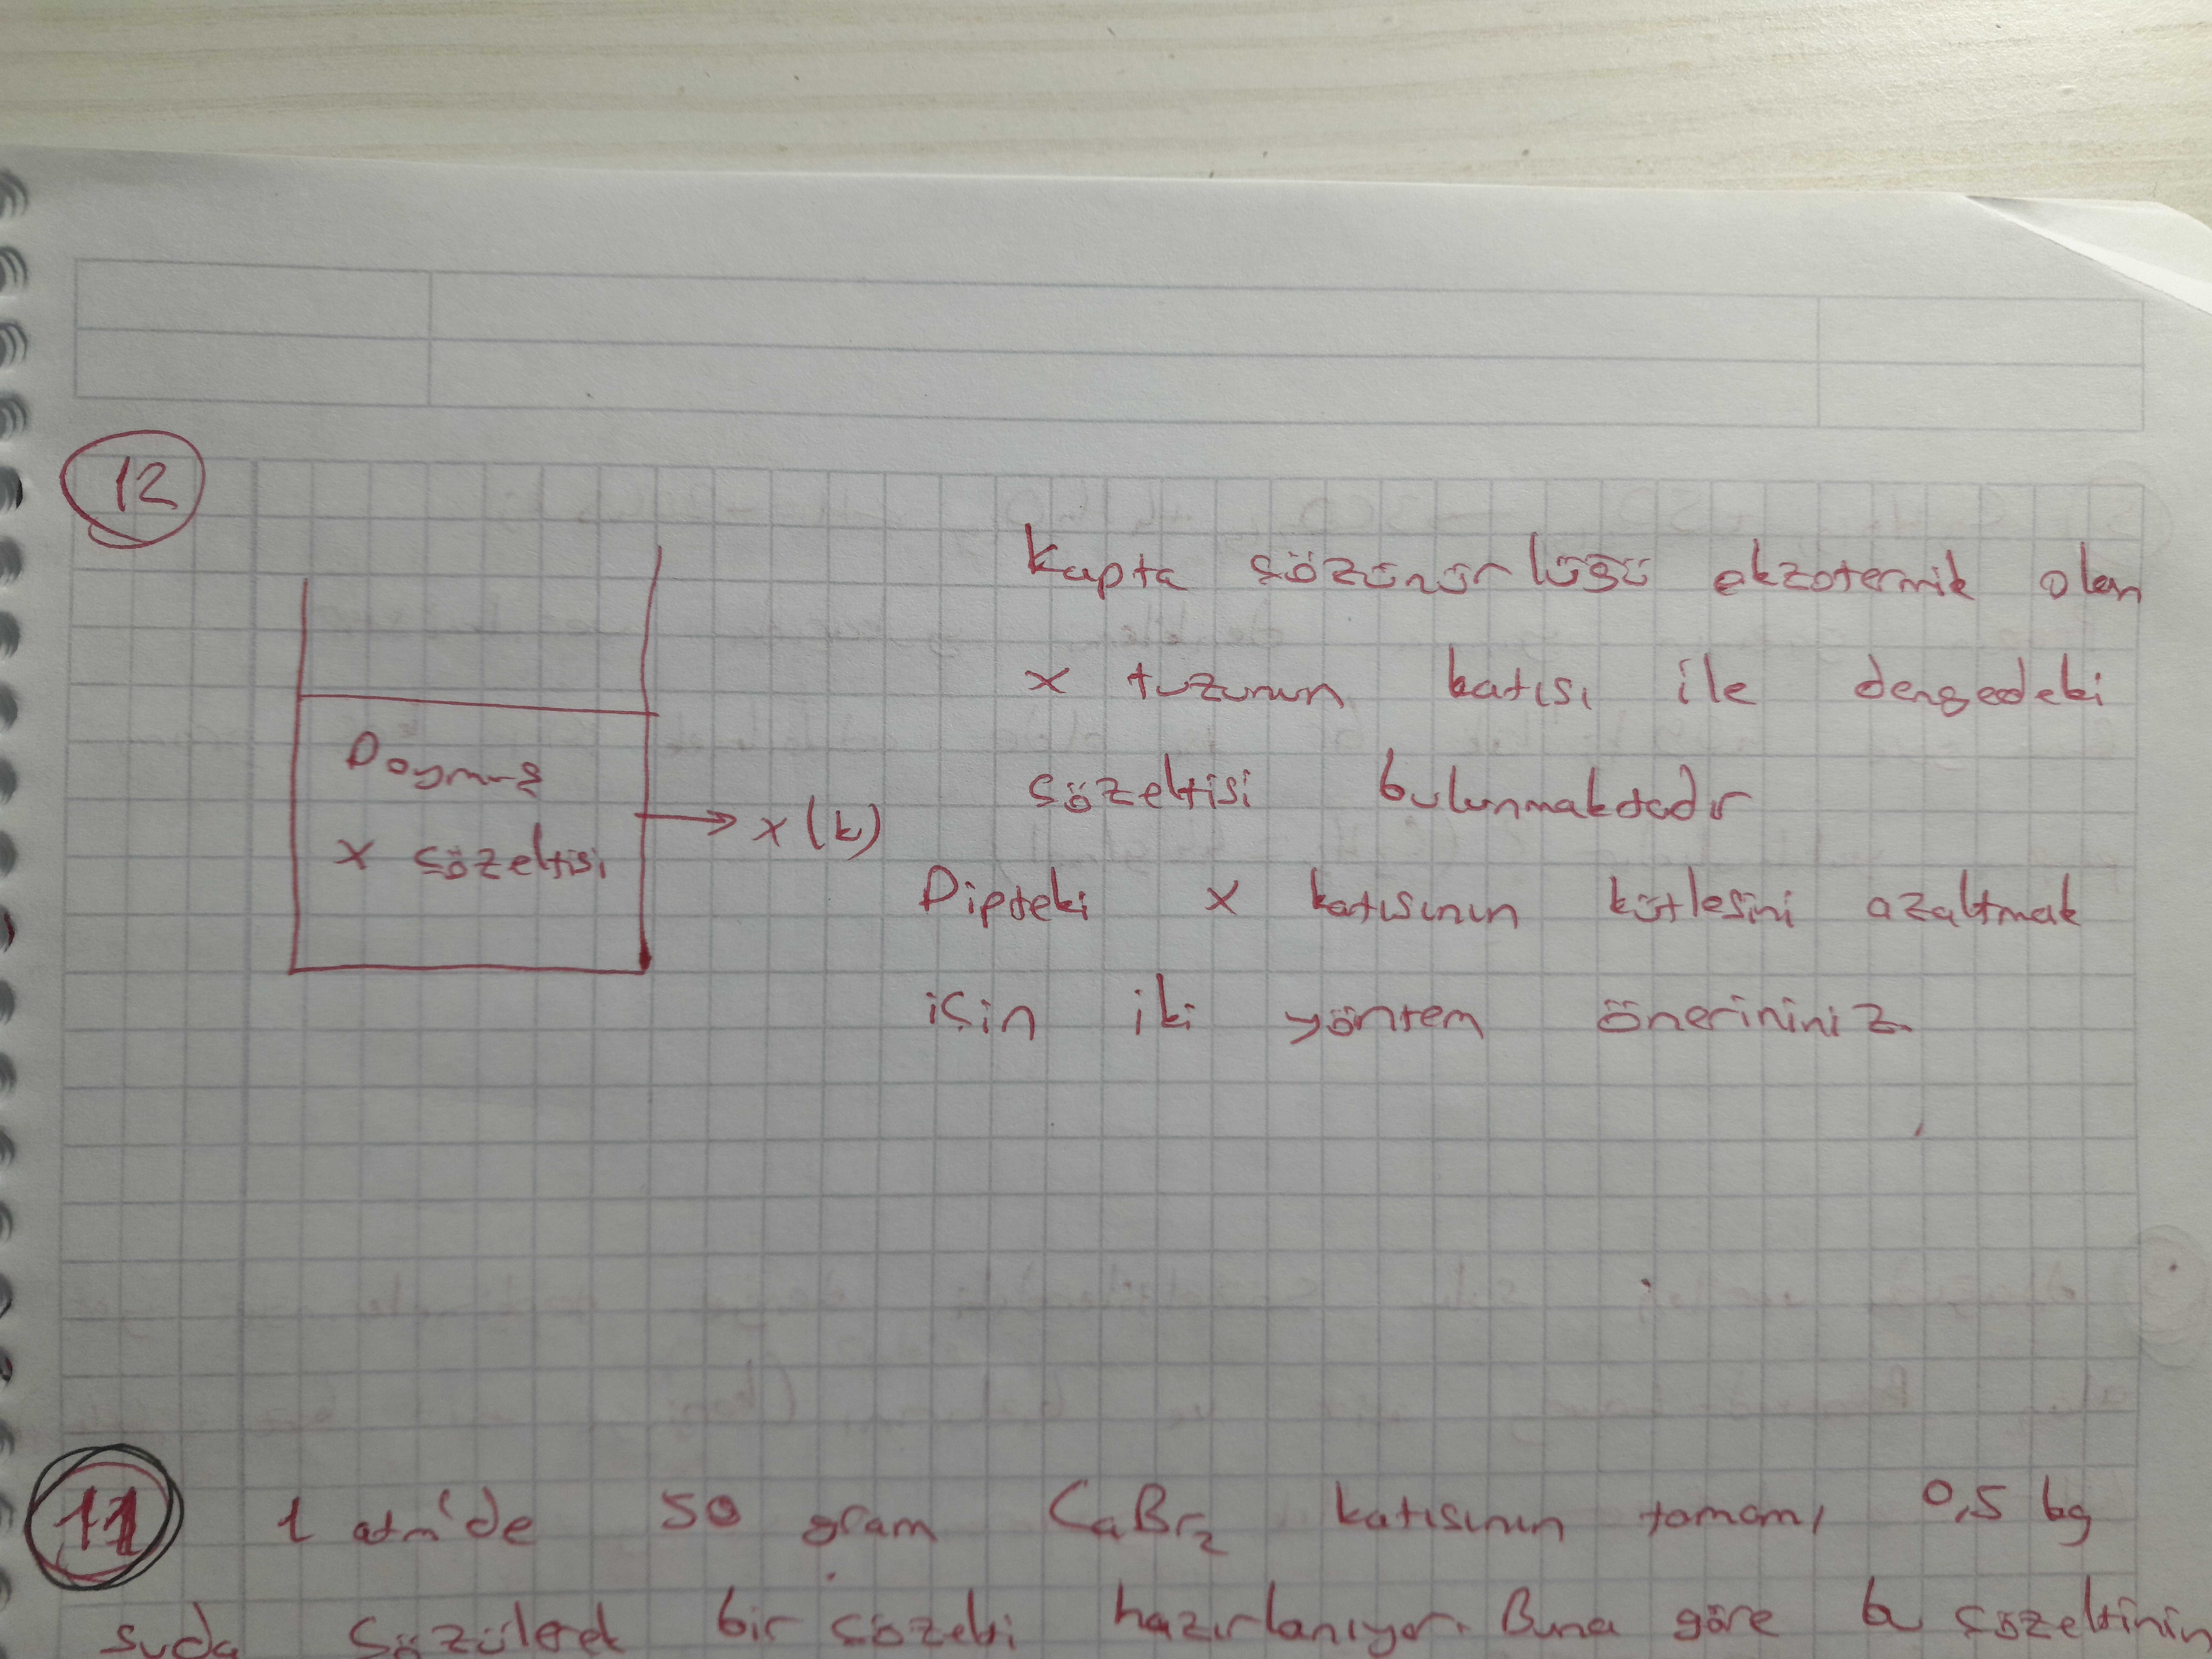 12
Kapta çözünürlüğü ekzotermik olan
x tuzunun katısı ile dengedeki
çözeltisi bulunmaktadır
Doymuş
x çözeltisi
x (k)
Dipteki x katısının kütlesini azaltmak
için iki yöntem önerininiz.
11 1 atm'de 50 gram CaBr₂ katısının tamamı 0,5 kg
suda çözülerek bir çözelti hazırlanıyor. Buna göre bu çözeltinin